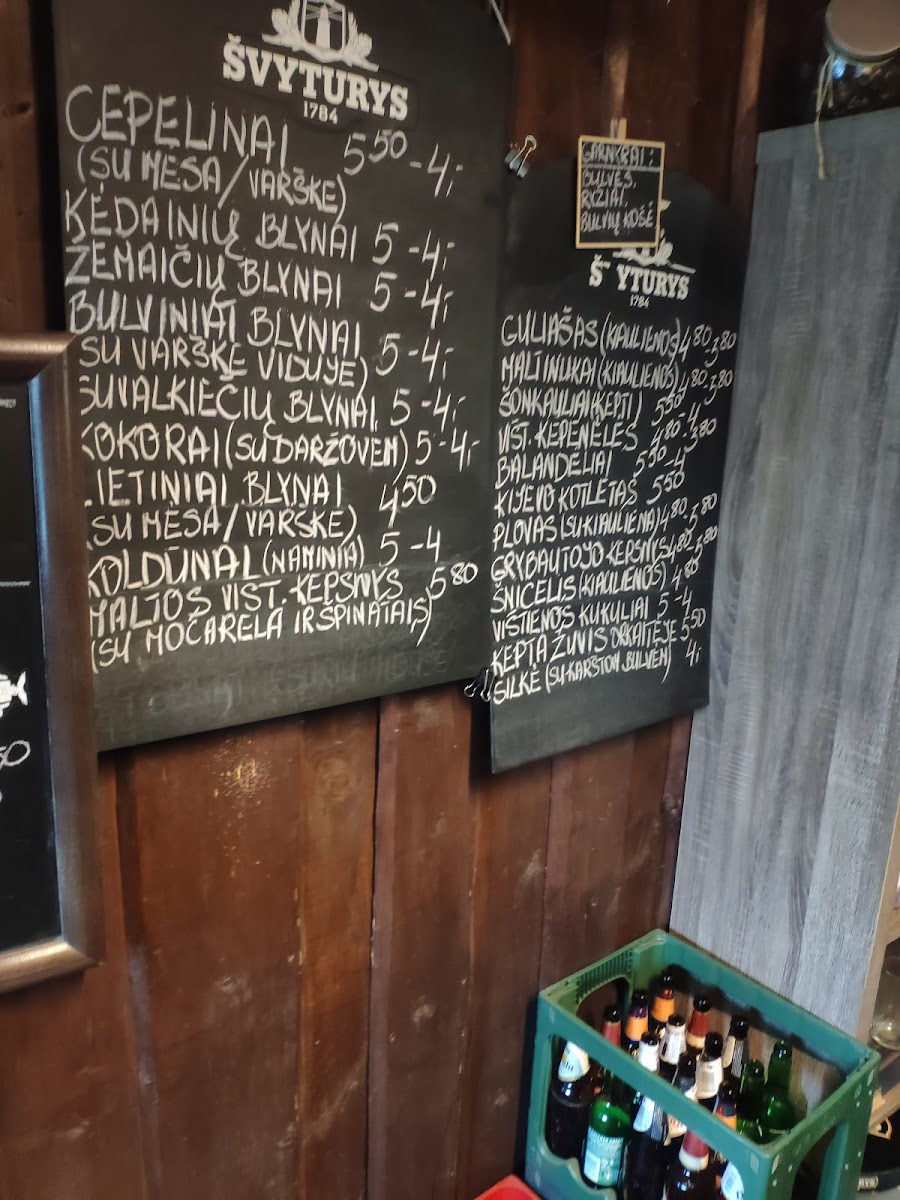 ŠVYTURYS
1784
CEPELINAI 5⁵⁰ - 4,-
(SU MĖSA / VARŠKE)
KĖDAINIŲ BLYNAI 5 - 4,-
ŽEMAIČIŲ BLYNAI 5 - 4,-
BULVINIAI BLYNAI
SU VARŠKE VIDUJE) 5 - 4,-
SUVALKIEČIŲ BLYNAI 5 - 4,-
KOKORAI (SU DARŽOVĖM) 5 - 4,-
LIETINIAI BLYNAI 4⁵⁰
(SU MĖSA / VARŠKE)
KOLDŪNAI (NAMINIAI) 5 - 4
MALTOS VIŠT. KEPSNYS 5⁸⁰
(SU MOČARELA IR ŠPINATAIS)
GARNYRAI:
BULVĖS,
RYŽIAI,
BULVIŲ KOŠĖ
Š YTURYS
1784
GULIAŠAS (KIAULIENOS) 4⁸⁰ - 3⁸⁰
MALTINUKAI (KIAULIENOS) 4⁸⁰ - 3⁸⁰
ŠONKAULIAI (KEPTI) 5⁵⁰
VIŠT. KEPENĖLĖS 5⁵⁰ - 4
BALANDĖLIAI 4⁸⁰ - 3⁸⁰
KIJEVO KOTLETAS 5⁵⁰ - 4
PLOVAS (SU KIAULIENA) 5⁵⁰
GRYBAUTOJO KEPSNYS 4⁸⁰ - 3⁸⁰
ŠNICELIS (KIAULIENOS) 4⁸⁰ - 3⁸⁰
VIŠTIENOS KUKULIAI 4⁸⁰
KEPTA ŽUVIS ORKAITĖJE 5 - 4
SILKĖ (SU KARŠTOM BULVĖM) 5⁵⁰
4,-
50